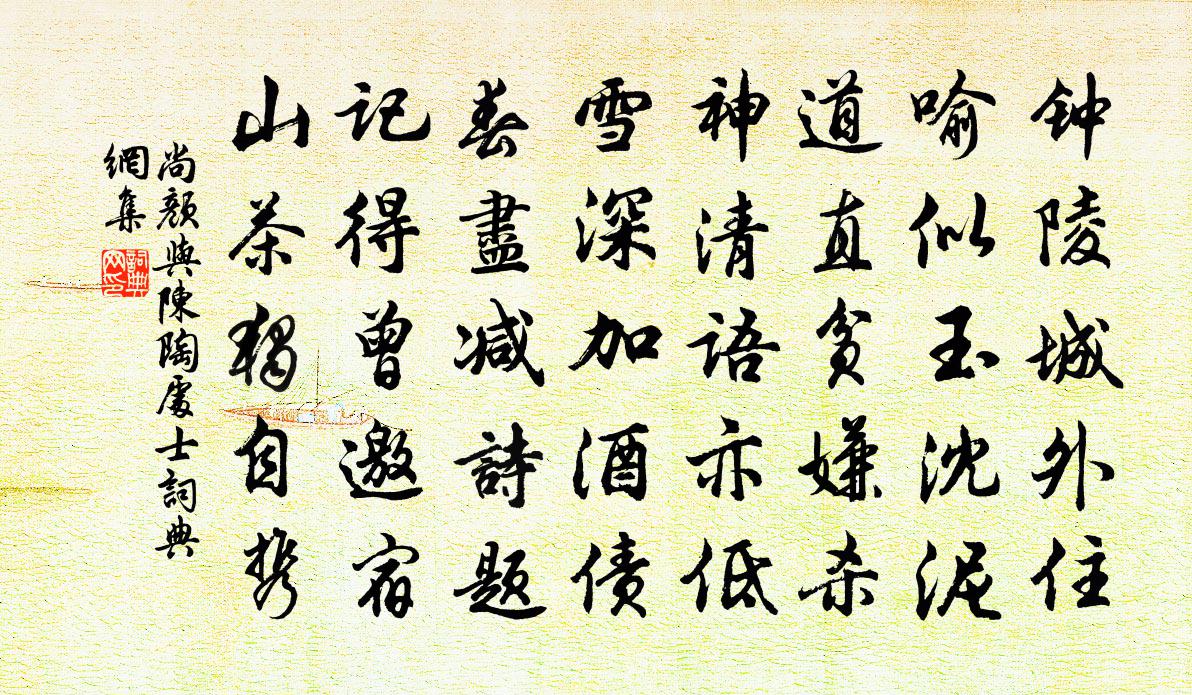 钟陵城外住
喻似玉沈泥
道直贫嫌杀
神清语亦低
雪深加酒债
春盡减詩题
记得曾邀宿
山茶獨自携
尚顔與陳陶處士詞典
網集
詞典
网印